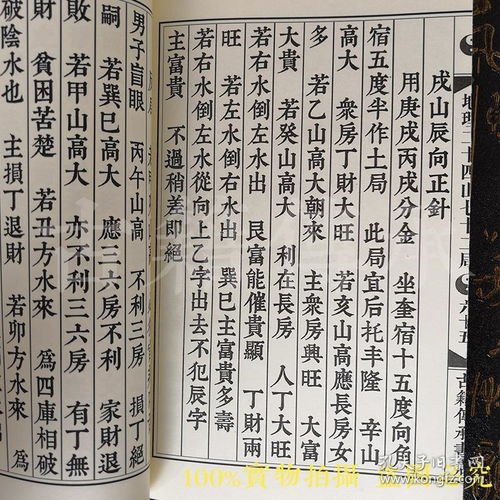 地理二十四山七十二局 六十五 古籍傳承
戌山辰向正針
用庚戌丙戌分金 坐奎宿十五度向角
宿五度半作土局 此局宜后托丰隆 辛山
高大 衆房丁財大旺 若亥山高應長房女
多 若乙山高大朝來 主衆房興旺 大富
大貴 若癸山高大 利在長房 人丁大旺
若右水倒左水出 艮富能催貴顯 丁財兩
旺 若左水倒右水出 巽巳主富貴多壽
若右水倒左水從向上乙字出去不犯辰字
主富貴 不過稍差即絕
男子盲眼 丙午山高 不利三房 損丁絕
嗣 若巽巳高大 應三六房不利 家財退
敗 若甲山高大 亦不利三六房 有丁無
財 貧困苦楚 若丑方水來 爲四庫相破
破陰水也 主損丁退財 若卯方水來 爲
100%實物拍攝
孔夫子旧书网
www.kongfz.com